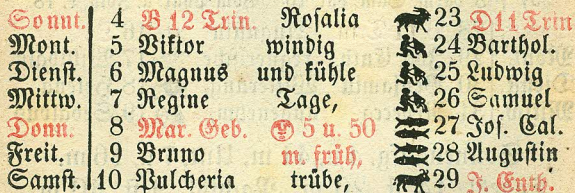 Sonnt. 4 B 12 Trin. Rosalia 23 D11 Trin
Mont. 5 Viktor windig 24 Barthol.
Dienst. 6 Magnus und kühle 25 Ludwig
Mittw. 7 Regine Tage, 26 Samuel
Donn. 8 Mar. Geb. 5 u. 50 27 Jos. Cal.
Freit. 9 Bruno m. früh, 28 Augustin
Samst. 10 Pulcheria trübe, 29 J. Enth.